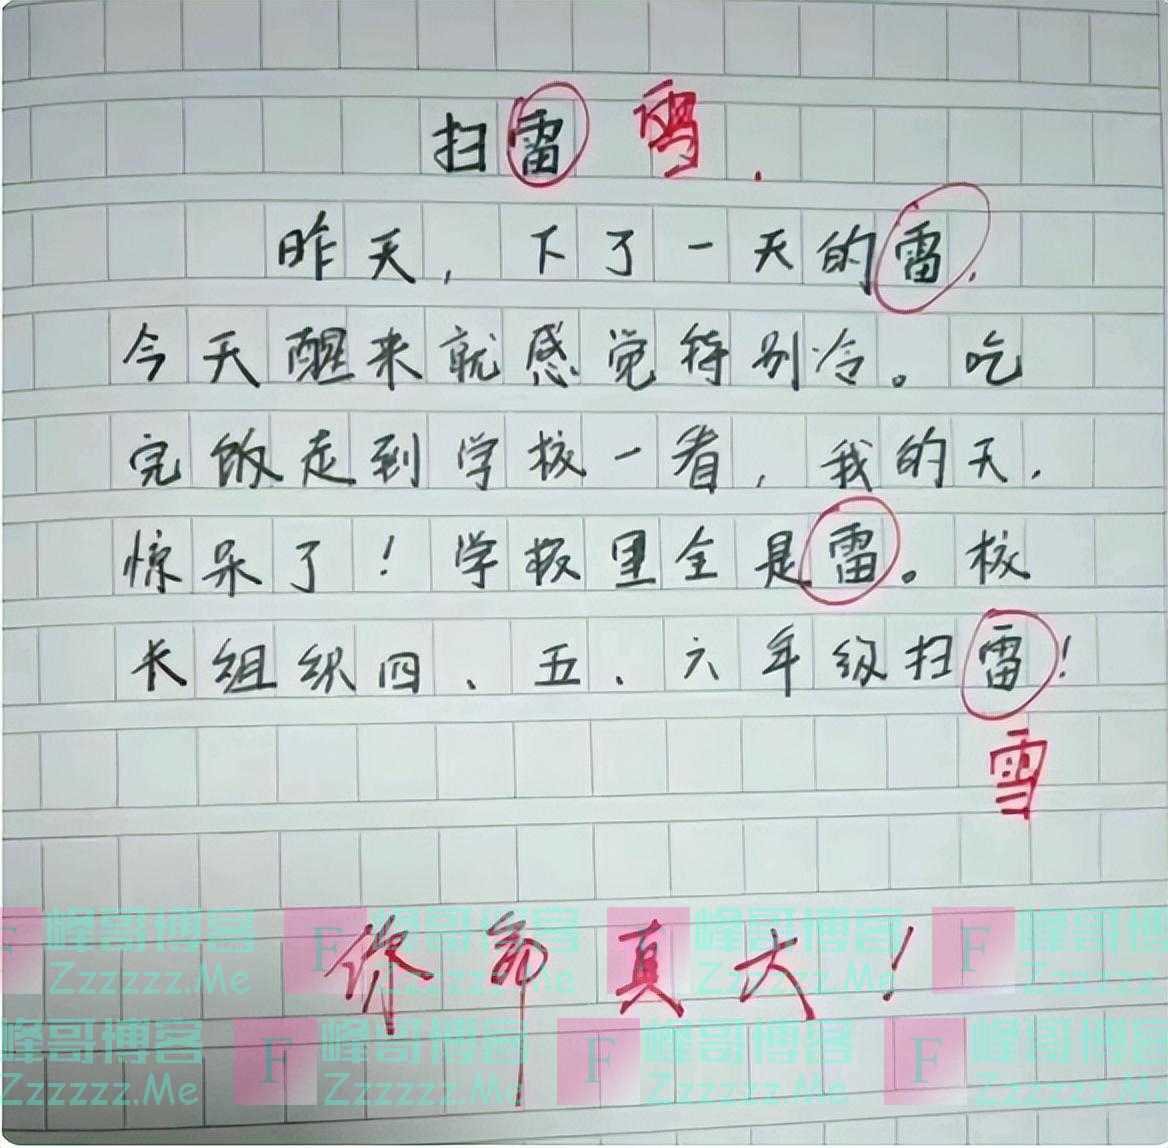 扫雷 雪.
昨天，下了一天的雷，
今天醒来就感觉特别冷。吃
完饭走到学校一看，我的天，
惊呆了！学校里全是雷。校
长组织四、五、六年级扫雷！
雪
你命真大！
峰哥博客 F 峰哥博客 F 峰哥博客 F 峰哥博
Zzzzzz.Me Zzzzzz.Me Zzzzzz.Me Zzzzzz.
峰哥博客 F 峰哥博客 F 峰哥博客 F 峰哥博客
Zzzzzz.Me Zzzzzz.Me Zzzzzz.Me Zzzzzz.Me